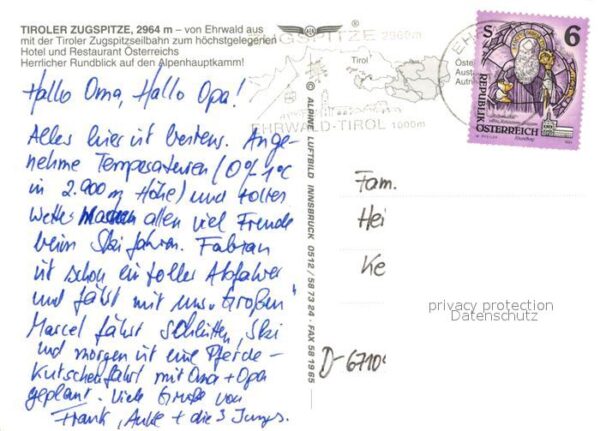 TIROLER ZUGSPITZE, 2964 m – von Ehrwald aus
mit der Tiroler Zugspitzseilbahn zum höchstgelegenen
Hotel und Restaurant Österreichs
Herrlicher Rundblick auf den Alpenhauptkamm!
ZUGSPITZE 2960m
Tirol
EHRWALD-TIROL 1000m
S 6
REPUBLIK
ÖSTERREICH
© ALPINE LUFTBILD INNSBRUCK 0512 / 58 73 84 · FAX 58 19 85
Hallo Oma, Hallo Opa!
Alles hier ist bestens. Ange-
nehme Temperaturen (0°/-1°C
in 2.900 m Höhe) und tolles
Wetter machen allen viel Freude
beim Ski fahren. Fabian
ist schon ein toller Abfahrer
und fährt mit uns "Großen"
Marcel fährt Schlitten, Ski
und morgen ist eine Pferde-
Kutschenfahrt mit Oma + Opa
geplant. Viele Grüße von
Frank, Anke + die 3 Jungs.
Fam.
Hei
Ke
D-6710
privacy protection
Datenschutz